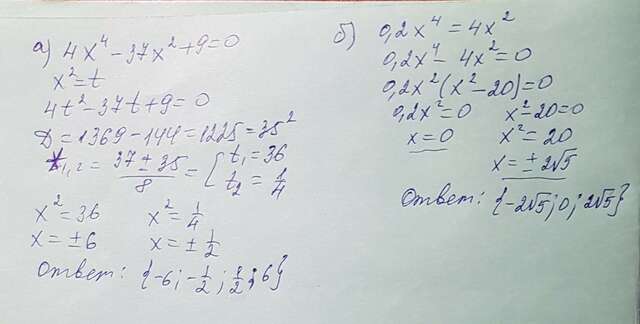 а) 4x⁴ − 37x² + 9 = 0
x² = t
4t² − 37t + 9 = 0
D = 1369 − 144 = 1225 = 35²
t₁,₂ = (37 ± 35)/8 = { t₁ = 36
t₂ = 1/4
x² = 36    x² = 1/4
x = ±6    x = ± 1/2
Ответ: {−6; −1/2; 1/2; 6}
б) 0,2x⁴ = 4x²
0,2x⁴ − 4x² = 0
0,2x²(x² − 20) = 0
0,2x² = 0    x² − 20 = 0
x = 0    x² = 20
x = ± 2√5
Ответ: {−2√5; 0; 2√5}